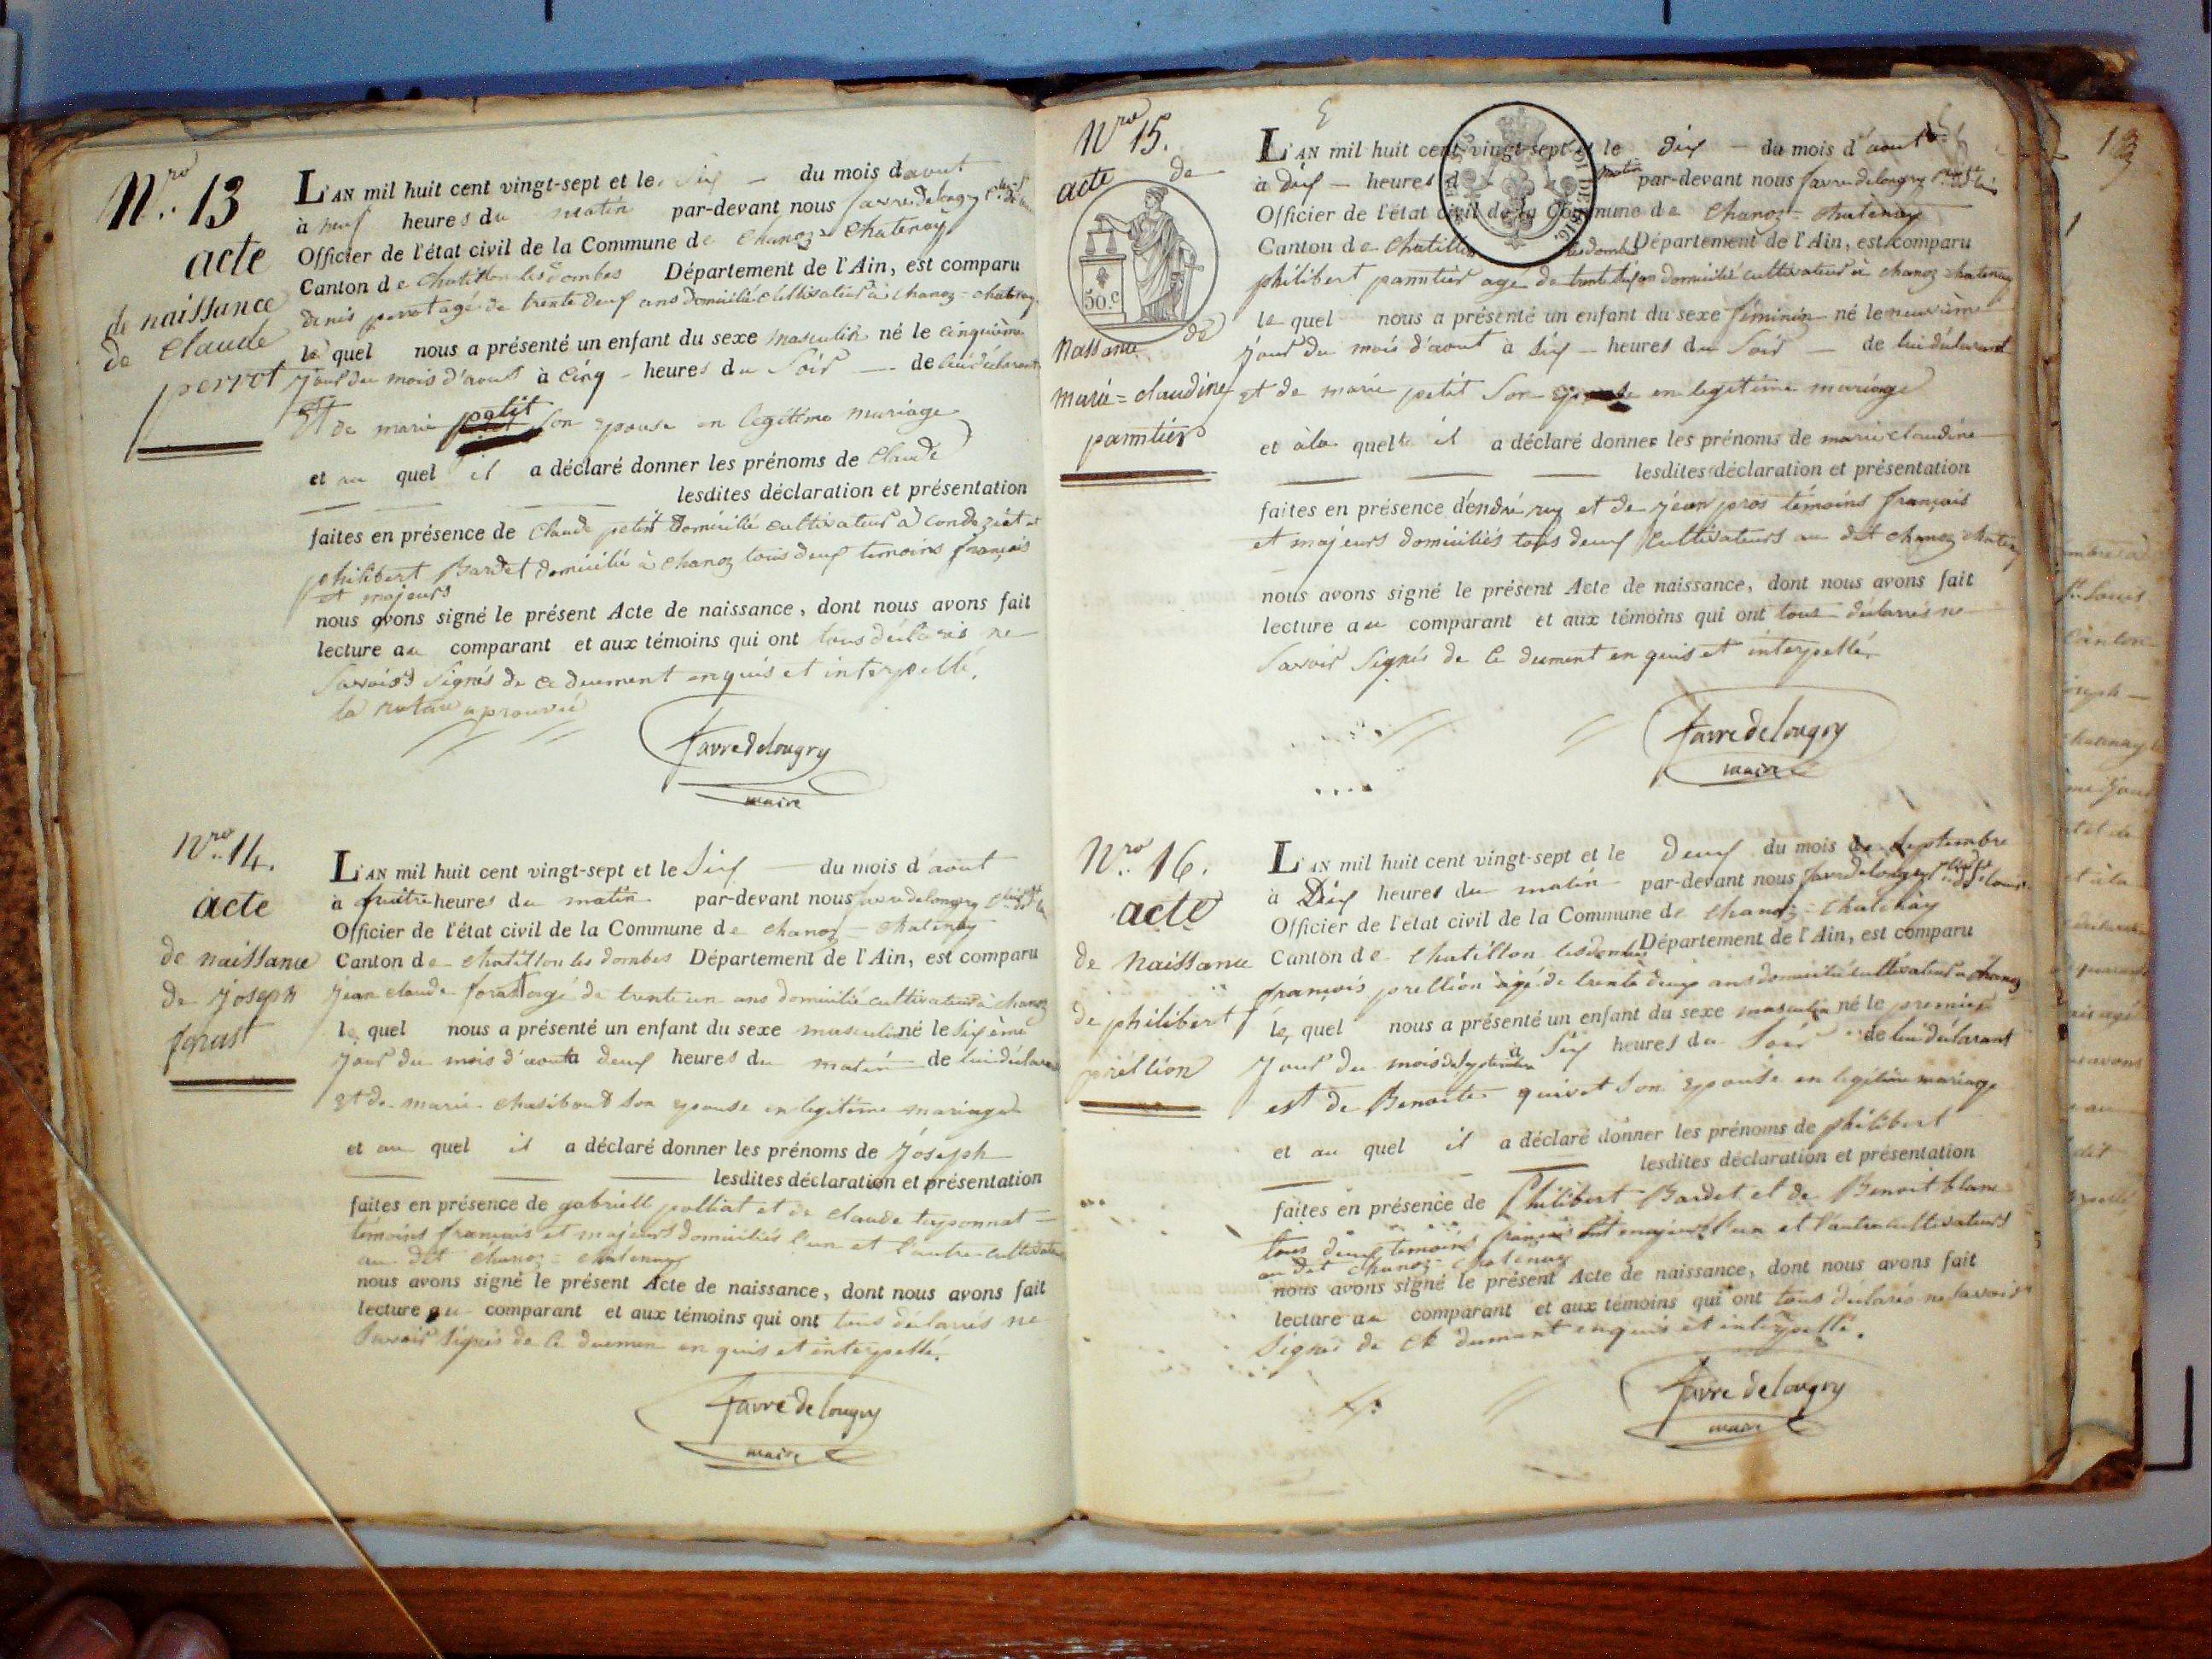 Nro 13
acte
de naissance
de claude
perrot
L'AN mil huit cent vingt-sept et le Six du mois d'aout
à neuf heures du matin par-devant nous favredelongry
Officier de l'état civil de la Commune de chanoz = chatenay
Canton de chatillon les dombes Département de l'Ain, est comparu
denis perrot agé de trente deux ans domicilié cultivateur à chanoz = chatenay
le quel nous a présenté un enfant du sexe masculin né le cinquième
jour du mois d'aout à cinq heures du Soir de lui déclarant
Et de marie petit Son epouse en legitime mariage
et au quel il a déclaré donner les prénoms de Claude
lesdites déclaration et présentation
faites en présence de Claude petit domicilié cultivateur à condeziat et
philibert Bardet domicilié à chanoz tous deux temoins français
et majeurs
nous avons signé le présent Acte de naissance, dont nous avons fait
lecture au comparant et aux témoins qui ont tous déclarés ne
Savoir Signés de ce duement enquis et interpellé.
la rature aprouvée
favredelongry
maire
Nro 14.
acte
de naissance
de joseph
forast
L'AN mil huit cent vingt-sept et le Six du mois d'aout
à quatre heures du matin par-devant nous favredelongry
Officier de l'état civil de la Commune de chanoz = chatenay
Canton de chatillon les dombes Département de l'Ain, est comparu
jean claude forast agé de trente un ans domicilié cultivateur à chanoz
le quel nous a présenté un enfant du sexe masculin né le sixème
jour du mois d'aout à deux heures du matin de lui déclarant
Et de marie son epouse en legitime mariage
et au quel il a déclaré donner les prénoms de joseph
lesdites déclaration et présentation
faites en présence de gabriell polliat et de claude teponnat
témoins français et majeurs domiciliés l'un et l'autre cultivateurs
au dit chanoz = chatenay
nous avons signé le présent Acte de naissance, dont nous avons fait
lecture au comparant et aux témoins qui ont tous déclarés ne
Savoir Signés de ce duemen en quis et interpellé.
favredelongry
maire
Nro 15.
acte de
50.c
de
Nassance
marie = claudine
panntier
L'AN mil huit cent vingt-sept et le dix du mois d'aout
à dix heures du matin par-devant nous favredelongry
Officier de l'état civil de la Commune de chanoz = chatenay
Canton de chatillon lesdombes Département de l'Ain, est comparu
philibert panntier agé de domicilié cultivateur à chanoz chatenay
le quel nous a présenté un enfant du sexe féminin né le neuvième
jour du mois d'aout à six heures du Soir de lui déclarant
et de marie petit Son epouse en legitime mariage
et à la quelle il a déclaré donner les prénoms de marie claudine
lesdites déclaration et présentation
faites en présence d'endré rey et de jean pros témoins français
et majeurs domiciliés tous deux Cultivateurs au dit chanoz chatenay
nous avons signé le présent Acte de naissance, dont nous avons fait
lecture au comparant et aux témoins qui ont tous déclarés ne
Savoir Signés de ce duement en quis et interpellé.
favredelongry
maire
Nro 16.
acte
de Naissance
de philibert
préllion
L'AN mil huit cent vingt-sept et le deux du mois de septembre
à Dix heures du matin par-devant nous favredelongry
Officier de l'état civil de la Commune de chanoz = chatenay
Canton de chatillon lesdombes Département de l'Ain, est comparu
françois prellion agé de trente deux ans domicilié cultivateur à chanoz
le quel nous a présenté un enfant du sexe masculin né le premier
jour du mois de septembre à Six heures du Soir de lui déclarant
est de Benoite quivet son epouse en legitime mariage
et au quel il a déclaré donner les prénoms de philibert
lesdites déclaration et présentation
faites en présence de Philibert Bardet et de Benoit blanc
tous deux temoins français et majeurs l'un et l'autre cultivateurs
au dit chanoz = chatenay
nous avons signé le présent Acte de naissance, dont nous avons fait
lecture au comparant et aux témoins qui ont tous déclarés ne savoir
Signés de ce dument enquis et interpellé.
favredelongry
maire